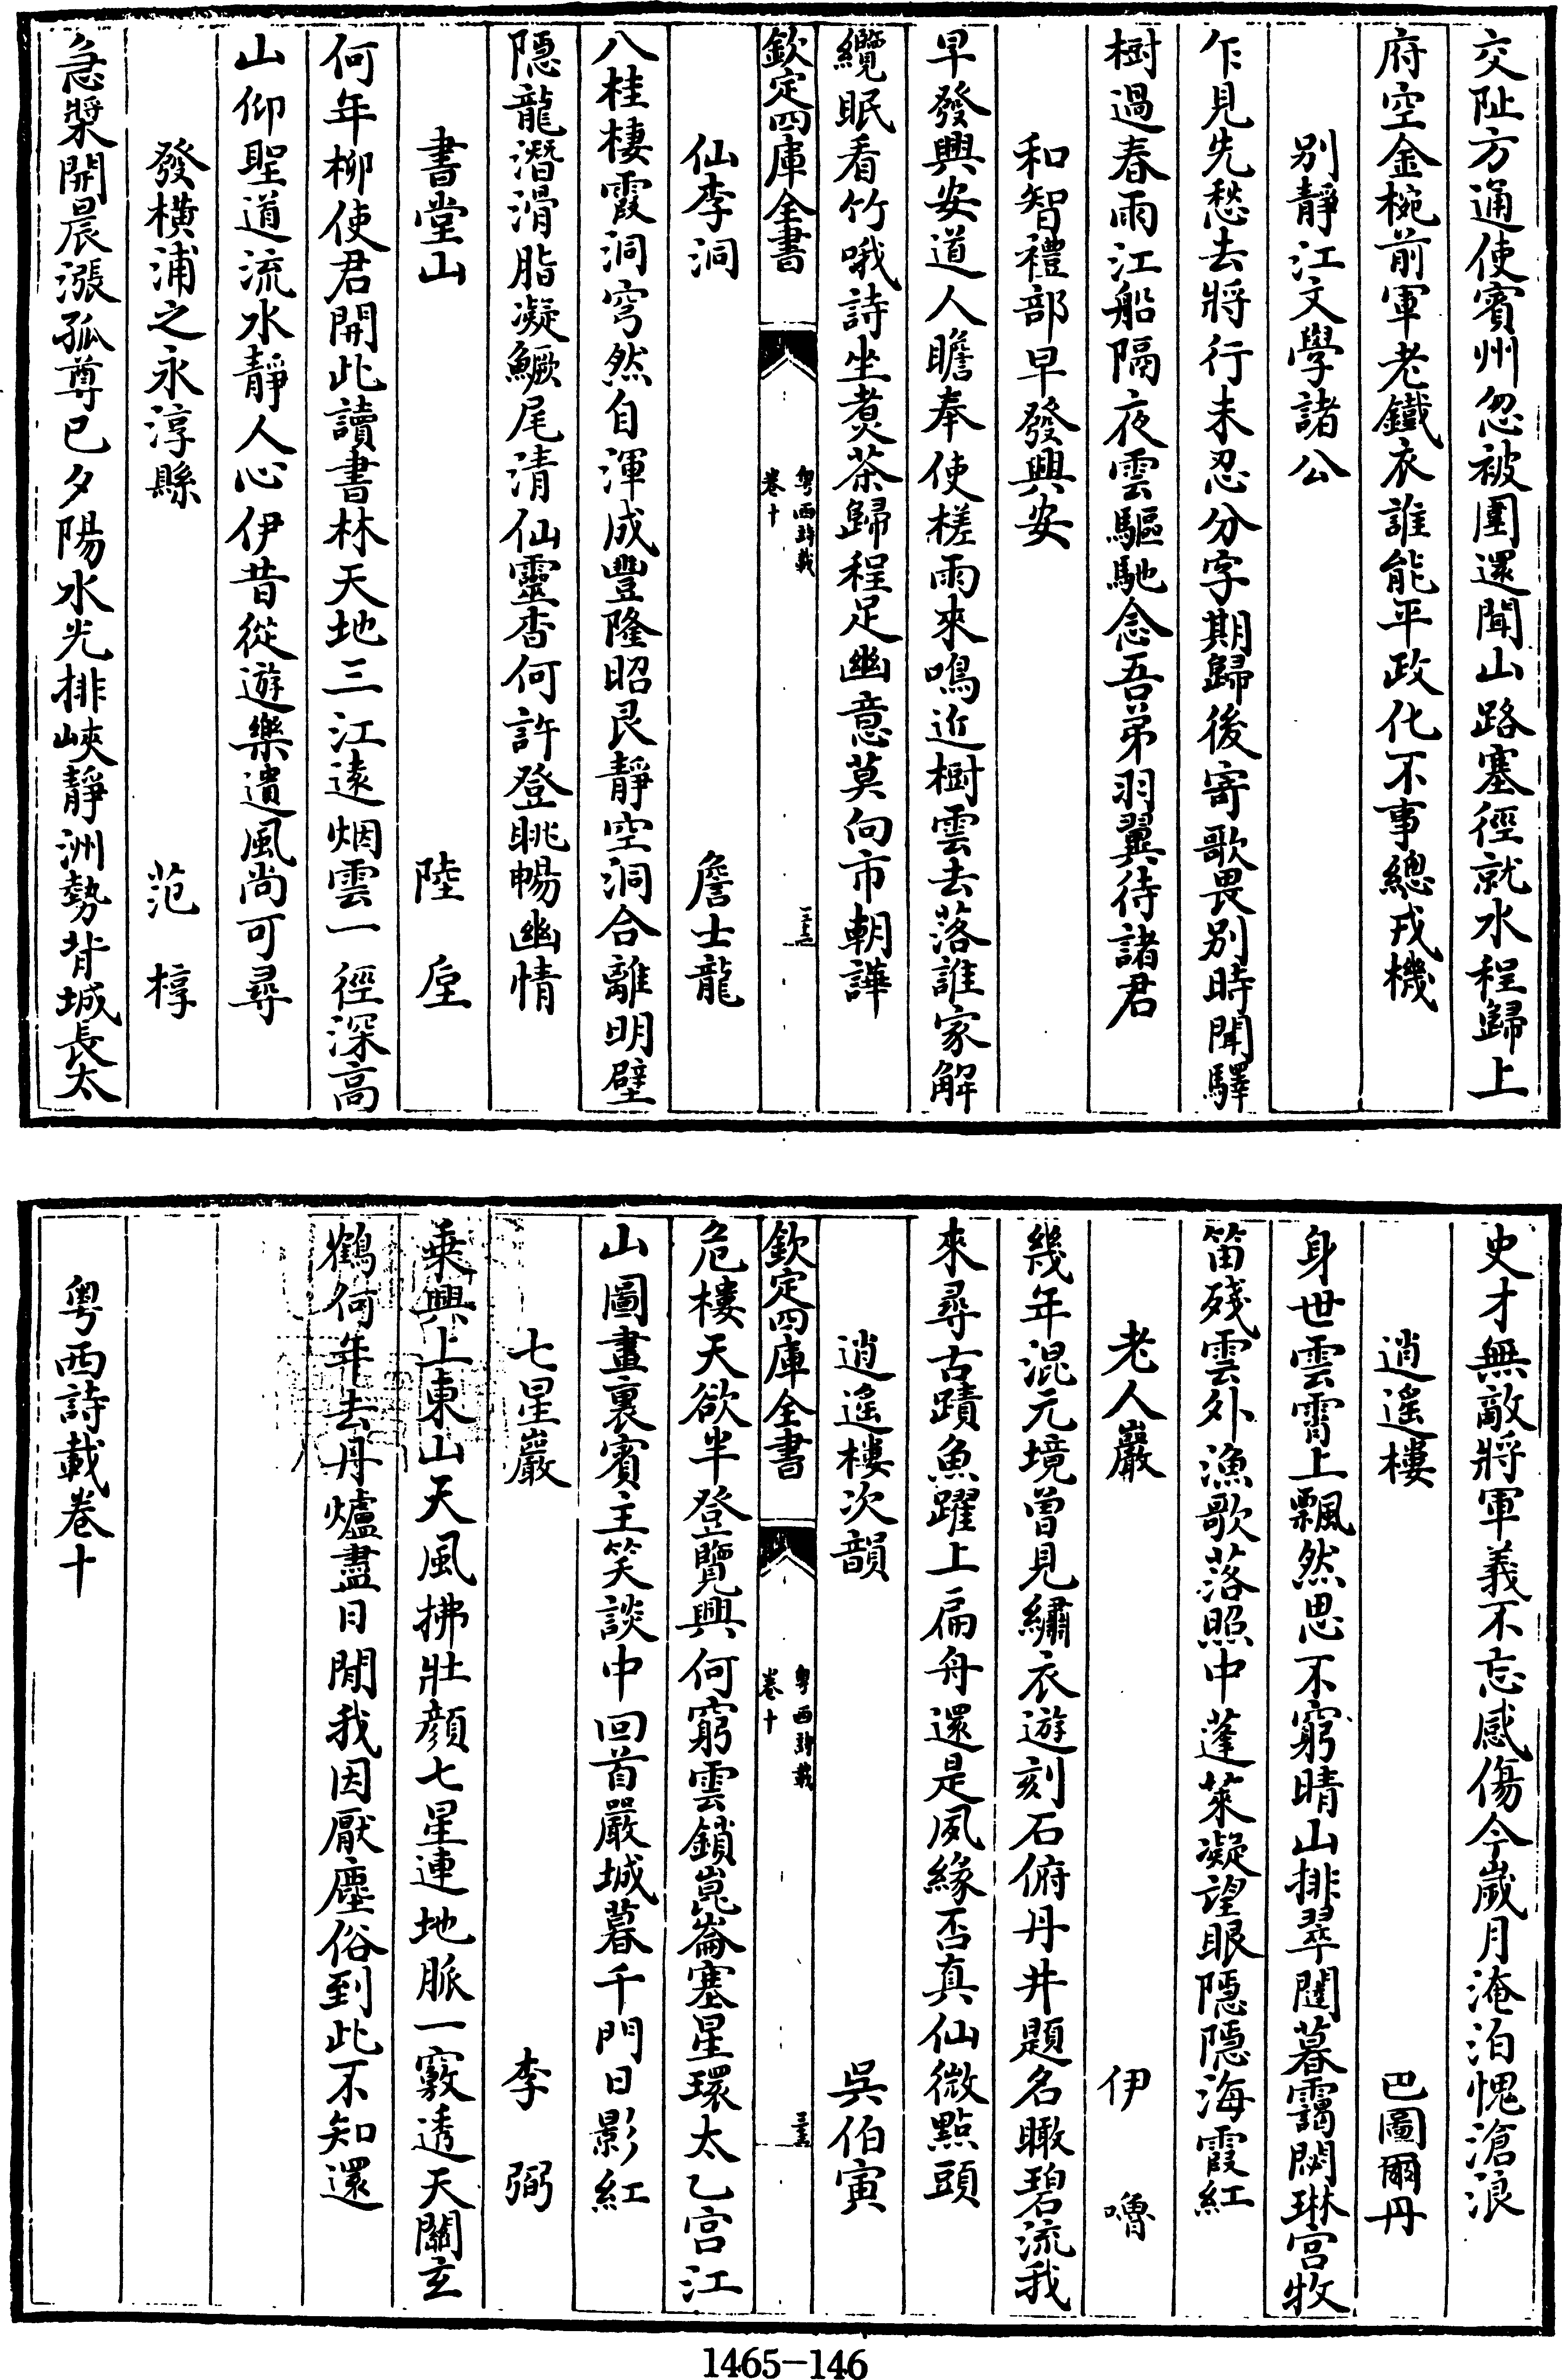 交阯方通使賓州忽被圍還聞山路塞徑就水程歸上
府空金椀前軍老鐵衣誰能平政化不事總戎機
别靜江文學諸公
乍見先愁去將行未忍分字期歸後寄歌畏别時聞驛
樹過春雨江船隔夜雲驅馳念吾弟羽翼待諸君
和智禮部早發興安
早發興安道人瞻奉使槎雨來鳴近樹雲去落誰家解
纜眠看竹哦詩坐煮茶歸程足幽意莫向市朝譁
欽定四庫全書
粤西詩載
卷十
仙李洞 詹士龍
八桂棲霞洞穹然自渾成豐隆昭艮靜空洞合離明壁
隠龍潛滑脂凝鱖尾清仙靈杳何許登眺暢幽情
書堂山 陸垕
何年柳使君開此讀書林天地三江逺烟雲一徑深高
山仰聖道流水靜人心伊昔從遊樂遺風尚可尋
發横浦之永淳縣 范梈
急槳開晨漲孤尊已夕陽水光排峽靜洲勢背城長太
史才無敵將軍義不忘感傷今嵗月淹泊愧滄浪
逍遙樓 巴圖爾丹
身世雲霄上飄然思不窮晴山排翠闥暮靄閟琳宫牧
笛殘雲外漁歌落照中蓬萊凝望眼隠隠海霞紅
老人巖 伊嚕
幾年混元境曾見繡衣遊刻石俯丹井題名瞰碧流我
來尋古蹟魚躍上扁舟還是夙緣否真仙微點頭
逍遙樓次韻 吳伯寅
欽定四庫全書
粤西詩載
卷十
危樓天欲半登覽興何窮雲鎖崑崙塞星環太乙宫江
山圖畫裏賓主笑談中回首嚴城暮千門日影紅
七星巖 李弼
乗興上東山天風拂壯顔七星連地脈一竅透天關玄
鶴何年去丹爐盡日閒我因厭塵俗到此不知還
粤西詩載卷十
1465-146